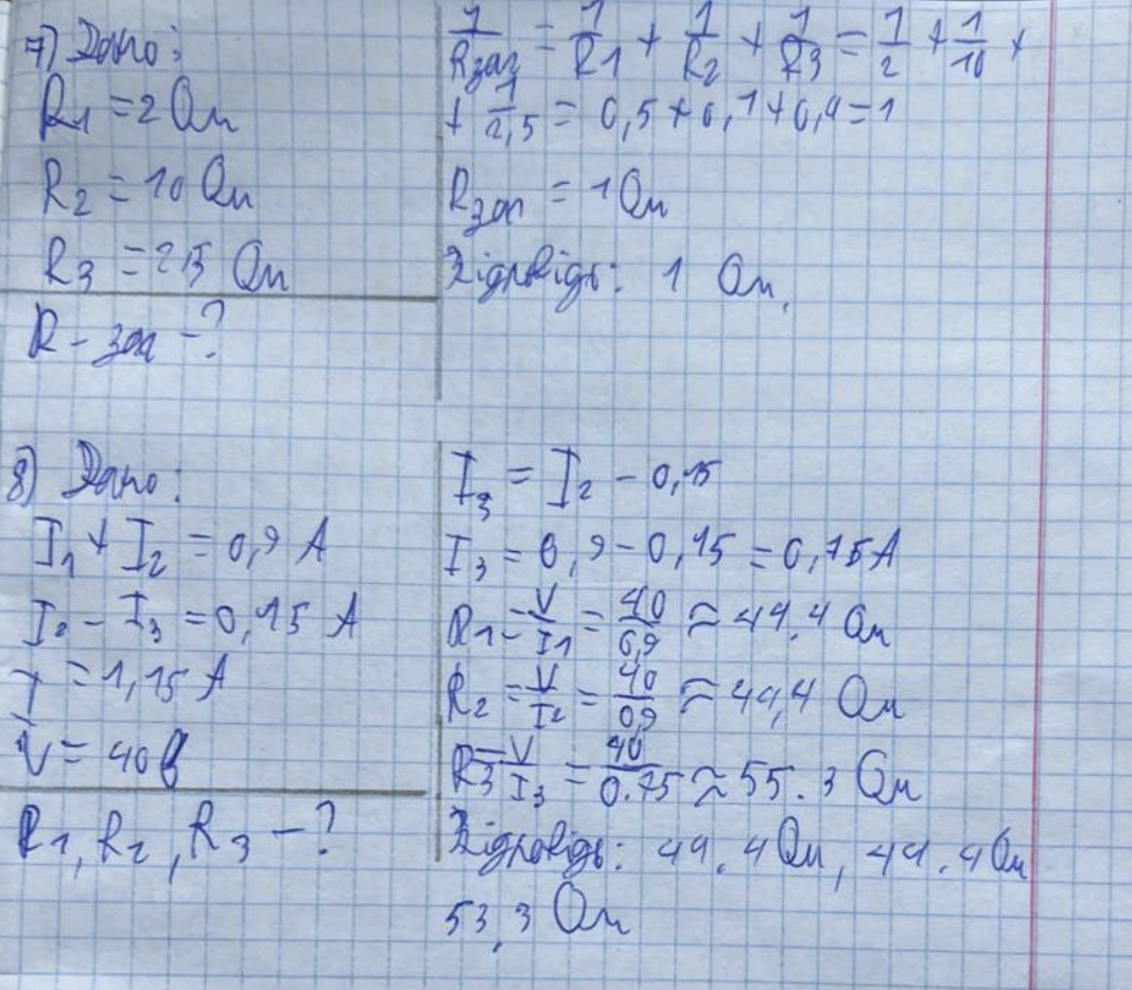 7) Дано:
R1 = 2 Ом
R2 = 10 Ом
R3 = 2,5 Ом
R - заг - ?
1/Rзаг = 1/R1 + 1/R2 + 1/R3 = 1/2 + 1/10 +
+ 1/2,5 = 0,5 + 0,1 + 0,4 = 1
Rзаг = 1 Ом
Відповідь: 1 Ом.
8) Дано:
I1 + I2 = 0,9 A
I2 - I3 = 0,15 A
I = 1,15 A
V = 40 В
R1, R2, R3 - ?
I3 = I2 - 0,15
I3 = 0,9 - 0,15 = 0,75 A
R1 = V/I1 = 40/0,9 ≈ 44.4 Ом
R2 = V/I2 = 40/0,9 ≈ 44,4 Ом
R3 = V/I3 = 40/0.75 ≈ 55.3 Ом
Відповідь: 44.4 Ом, 44.4 Ом
53,3 Ом